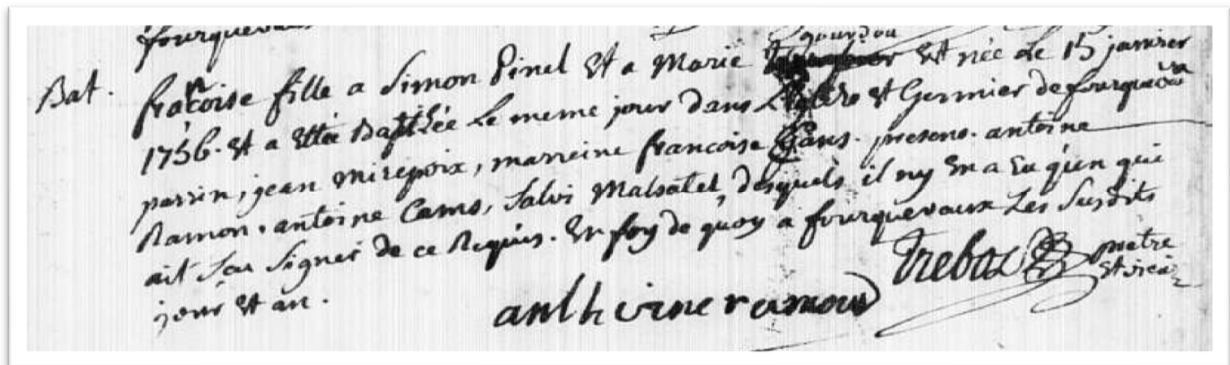 fourquevaux
gourdou
Bat. françoise fille a Simon Pinel Et a Marie Et née Le 15 janvier
1756. Et a Etté Baptisée Le meme jour dans L'eglise St Germier de fourquevaux
parrin, jean mirepoix, marreine francoise Gans. presens. antoine
Ramon. antoine Cams, Salvi Malsatel, desquels il ny En a Eu qu'en qui
ait sçu signer de ce Requis. En foy de quoy a fourquevaux Les Susdits
jour Et an.
Trebos pretre
Et vicai
anthoine ramond